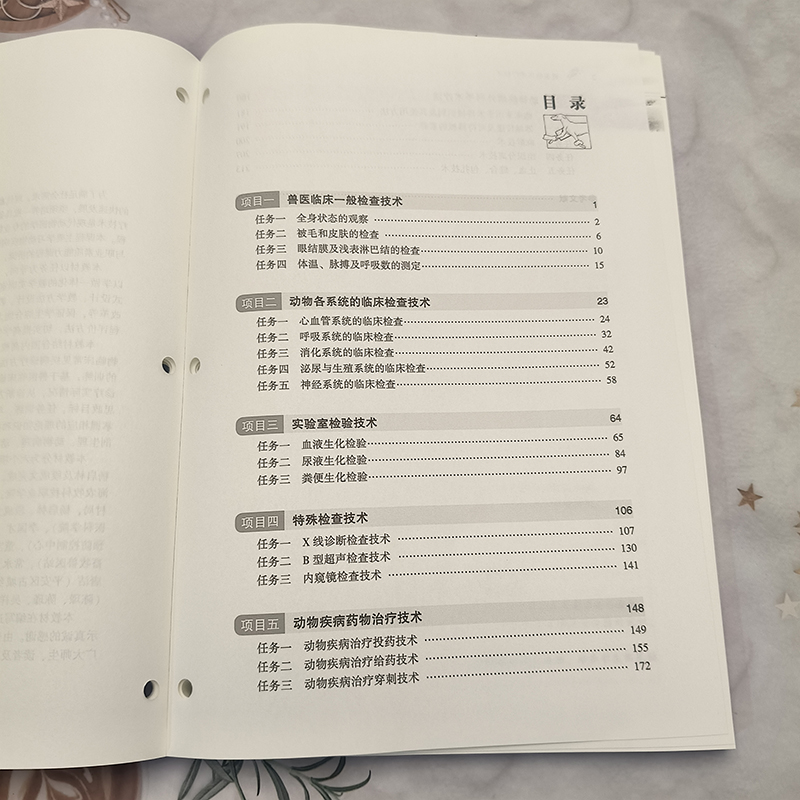 目录
项目一 兽医临床一般检查技术 1
任务一 全身状态的观察 2
任务二 被毛和皮肤的检查 6
任务三 眼结膜及浅表淋巴结的检查 10
任务四 体温、脉搏及呼吸数的测定 15
项目二 动物各系统的临床检查技术 23
任务一 心血管系统的临床检查 24
任务二 呼吸系统的临床检查 32
任务三 消化系统的临床检查 42
任务四 泌尿与生殖系统的临床检查 52
任务五 神经系统的临床检查 58
项目三 实验室检验技术 64
任务一 血液生化检验 65
任务二 尿液生化检验 84
任务三 粪便生化检验 97
项目四 特殊检查技术 106
任务一 X 线诊断检查技术 107
任务二 B 型超声检查技术 130
任务三 内窥镜检查技术 141
项目五 动物疾病药物治疗技术 148
任务一 动物疾病治疗投药技术 149
任务二 动物疾病治疗给药技术 155
任务三 动物疾病治疗穿刺技术 172